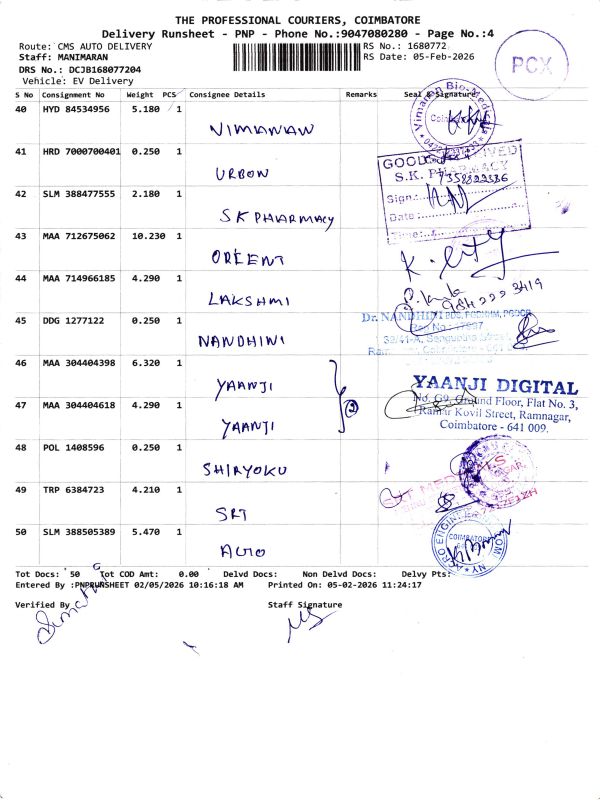 THE PROFESSIONAL COURIERS, COIMBATORE
Delivery Runsheet - PNP - Phone No.:9047080280 - Page No.:4
Route: CMS AUTO DELIVERY
RS No.: 1680772
Staff: MANIMARAN
RS Date: 05-Feb-2026
DRS No.: DCJB168077204
Vehicle: EV Delivery
PCX
S No Consignment No Weight PCS Consignee Details Remarks Seal & Signature
40 HYD 84534956 5.180 1
VIMANAN
41 HRD 7000700401 0.250 1
URBON
42 SLM 388477555 2.180 1
SK PHARMACY
S.K. PHARMACY
Sign:
Date:
Time:
43 MAA 712675062 10.230 1
ORIENT
44 MAA 714966185 4.290 1
LAKSHMI
45 DDG 1277122 0.250 1
NANDHINI
Dr. NANDHINI BDS,
46 MAA 304404398 6.320 1
YAANJI
47 MAA 304404618 4.290 1
YAANJI
2
YAANJI DIGITAL
No. G9, Ground Floor, Flat No. 3,
Ramar Kovil Street, Ramnagar,
Coimbatore - 641 009.
48 POL 1408596 0.250 1
SHIRYOKU
49 TRP 6384723 4.210 1
SRI
50 SLM 388505389 5.470 1
AGRO
COIMBATORE
Tot Docs: 50 Tot COD Amt: 0.00 Delvd Docs: Non Delvd Docs: Delvy Pts:
Entered By :PNPRUNSHEET 02/05/2026 10:16:18 AM Printed On: 05-02-2026 11:24:17
Verified By
Staff Signature